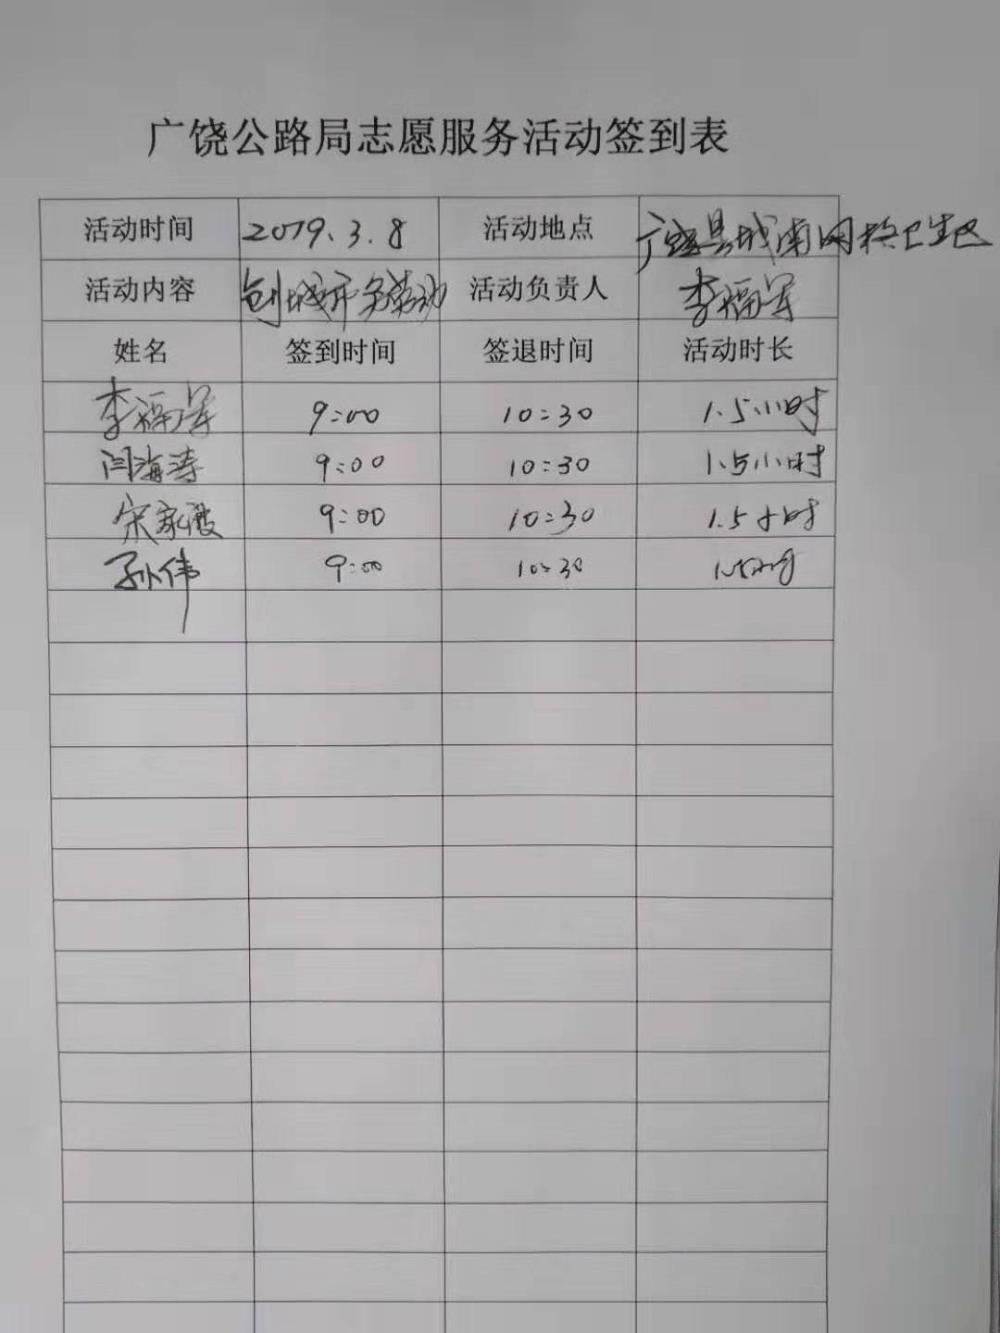 广饶公路局志愿服务活动签到表
活动时间 2019.3.8 活动地点 广饶县城南网格卫生区
活动内容 创城义务劳动 活动负责人 李福军
姓名 签到时间 签退时间 活动时长
李福军 9:00 10:30 1.5小时
闫海涛 9:00 10:30 1.5小时
宋家霞 9:00 10:30 1.5小时
孙伟 9:00 10:30 1.5小时